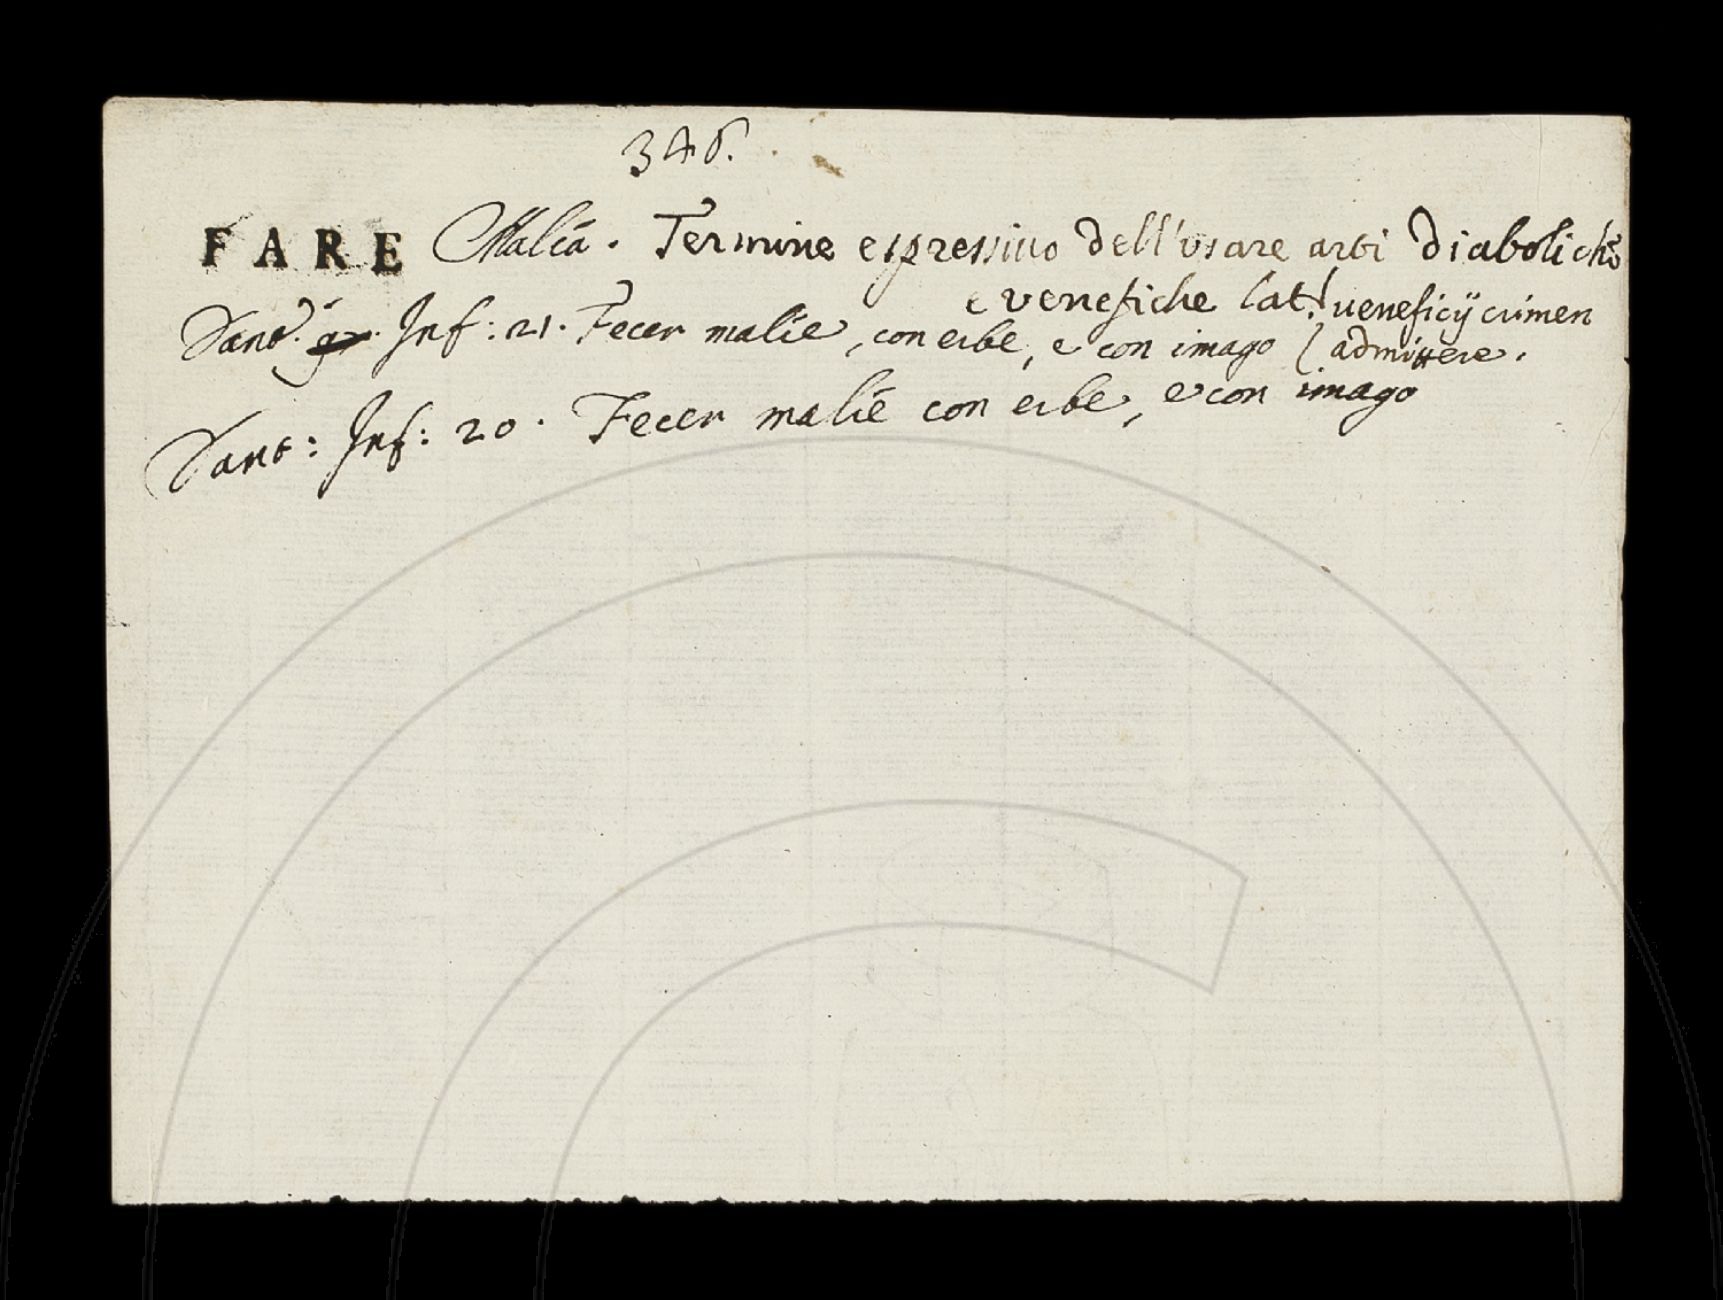 346.
FARE Malia. Termine espressiuo dell'usare arti diaboliche
e venefiche lat. ueneficij crimen
Dant. Inf: 21. Fecer malie, con erbe, e con imago admittere.
Dant: Inf: 20. Fecer malie con erbe, e con imago